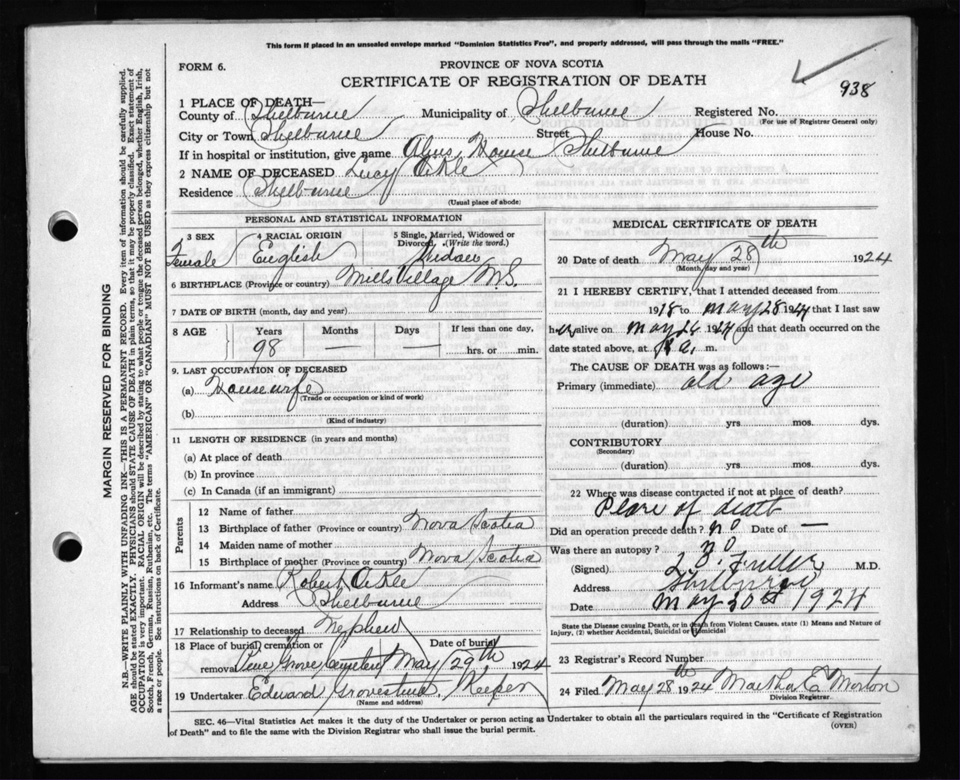 This form if placed in an unsealed envelope marked "Dominion Statistics Free", and properly addressed, will pass through the mails "FREE."
FORM 6.
PROVINCE OF NOVA SCOTIA
CERTIFICATE OF REGISTRATION OF DEATH
938
1 PLACE OF DEATH—
County of Shelburne Municipality of Shelburne Registered No.
(For use of Registrar General only)
City or Town Shelburne Street House No.
If in hospital or institution, give name Alms House Shelburne
2 NAME OF DECEASED Lucy
Residence Shelburne
(Usual place of abode)
PERSONAL AND STATISTICAL INFORMATION
3 SEX 4 RACIAL ORIGIN 5 Single, Married, Widowed or Divorced. (Write the word.)
Female English Widow
6 BIRTHPLACE (Province or country) Mills Village N.S.
7 DATE OF BIRTH (month, day and year)
8 AGE Years Months Days If less than one day,
98 — — hrs. or min.
9. LAST OCCUPATION OF DECEASED
(a) Housewife
(Trade or occupation or kind of work)
(b)
(Kind of industry)
11 LENGTH OF RESIDENCE (in years and months)
(a) At place of death
(b) In province
(c) In Canada (if an immigrant)
Parents
12 Name of father
13 Birthplace of father (Province or country) Nova Scotia
14 Maiden name of mother
15 Birthplace of mother (Province or country) Nova Scotia
16 Informant's name Robert
Address Shelburne
17 Relationship to deceased Nephew
18 Place of burial, cremation or removal Pine Grove Cemetery Date of burial May 29th 1924
19 Undertaker Edward Keeper
(Name and address)
MEDICAL CERTIFICATE OF DEATH
20 Date of death May 28th 1924
(Month, day and year)
21 I HEREBY CERTIFY, that I attended deceased from
1918 to May 28 1924 that I last saw
her alive on May 26 1924 and that death occurred on the
date stated above, at a. m.
The CAUSE OF DEATH was as follows:—
Primary (immediate) old age
(duration) yrs. mos. dys.
CONTRIBUTORY
(Secondary)
(duration) yrs. mos. dys.
22 Where was disease contracted if not at place of death?
Place of death
Did an operation precede death? no Date of —
Was there an autopsy? no
(Signed) Fuller M.D.
Address Shelburne
Date May 30st 1924
State the Disease causing Death, or in death from Violent Causes, state (1) Means and Nature of Injury, (2) whether Accidental, Suicidal or Homicidal
23 Registrar's Record Number
24 Filed May 28th 1924 Martha E Morton
Division Registrar.
SEC. 46—Vital Statistics Act makes it the duty of the Undertaker or person acting as Undertaker to obtain all the particulars required in the "Certificate of Registration
of Death" and to file the same with the Division Registrar who shall issue the burial permit.
(OVER)
MARGIN RESERVED FOR BINDING
N.B.—WRITE PLAINLY WITH UNFADING INK—THIS IS A PERMANENT RECORD. Every item of information should be carefully supplied.
AGE should be stated EXACTLY. PHYSICIANS should STATE CAUSE OF DEATH in plain terms, so that it may be properly classified. Exact statement of
OCCUPATION is very important. RACIAL ORIGIN will be described by stating to what people or tongue the deceased person belonged, whether English, Irish,
Scotch, French, German, Russian, Ruthenian, etc. The terms "AMERICAN" OR "CANADIAN" MUST NOT BE USED as they express citizenship but not
a race or people. See instructions on back of Certificate.